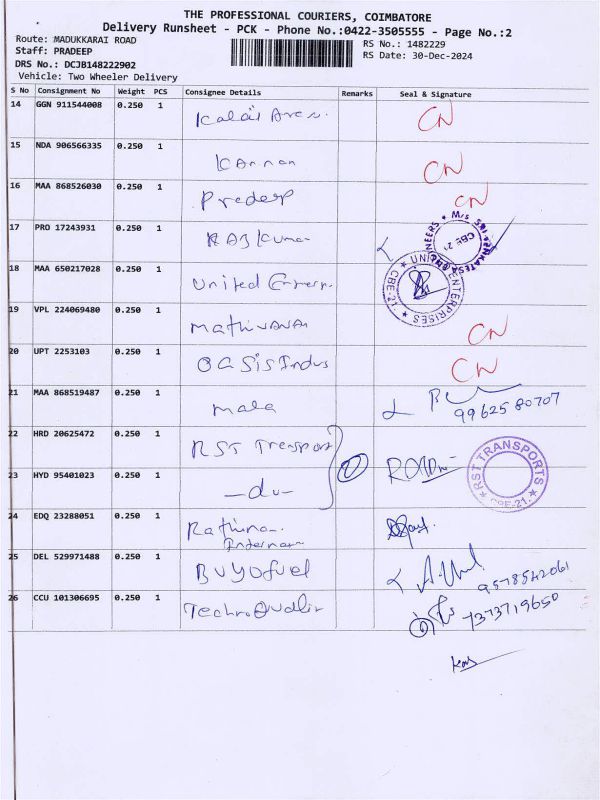 THE PROFESSIONAL COURIERS, COIMBATORE
Delivery Runsheet - PCK - Phone No.:0422-3505555 - Page No.:2
Route: MADUKKARAI ROAD
RS No.: 1482229
Staff: PRADEEP
RS Date: 30-Dec-2024
DRS No.: DCJB148222902
Vehicle: Two Wheeler Delivery
S No Consignment No Weight PCS Consignee Details Remarks Seal & Signature
14 GGN 911544008 0.250 1 Kalai CN
15 NDA 906566335 0.250 1 Kannan CN
16 MAA 868526030 0.250 1 Pradeep CN
17 PRO 17243931 0.250 1 Rajkumar
18 MAA 650217028 0.250 1 United UNITED ENTERPRISES CBE-21
19 VPL 224069480 0.250 1 Mathivanan CN
20 UPT 2253103 0.250 1 Oasis Indus CN
21 MAA 868519487 0.250 1 mala 9962580707
22 HRD 20625472 0.250 1 RST Transport RST TRANSPORTS CBE-21.
23 HYD 95401023 0.250 1 -du-
24 EDQ 23288051 0.250 1 Rathina
25 DEL 529971488 0.250 1 Buyofuel 9578542061
26 CCU 101306695 0.250 1 7373719650